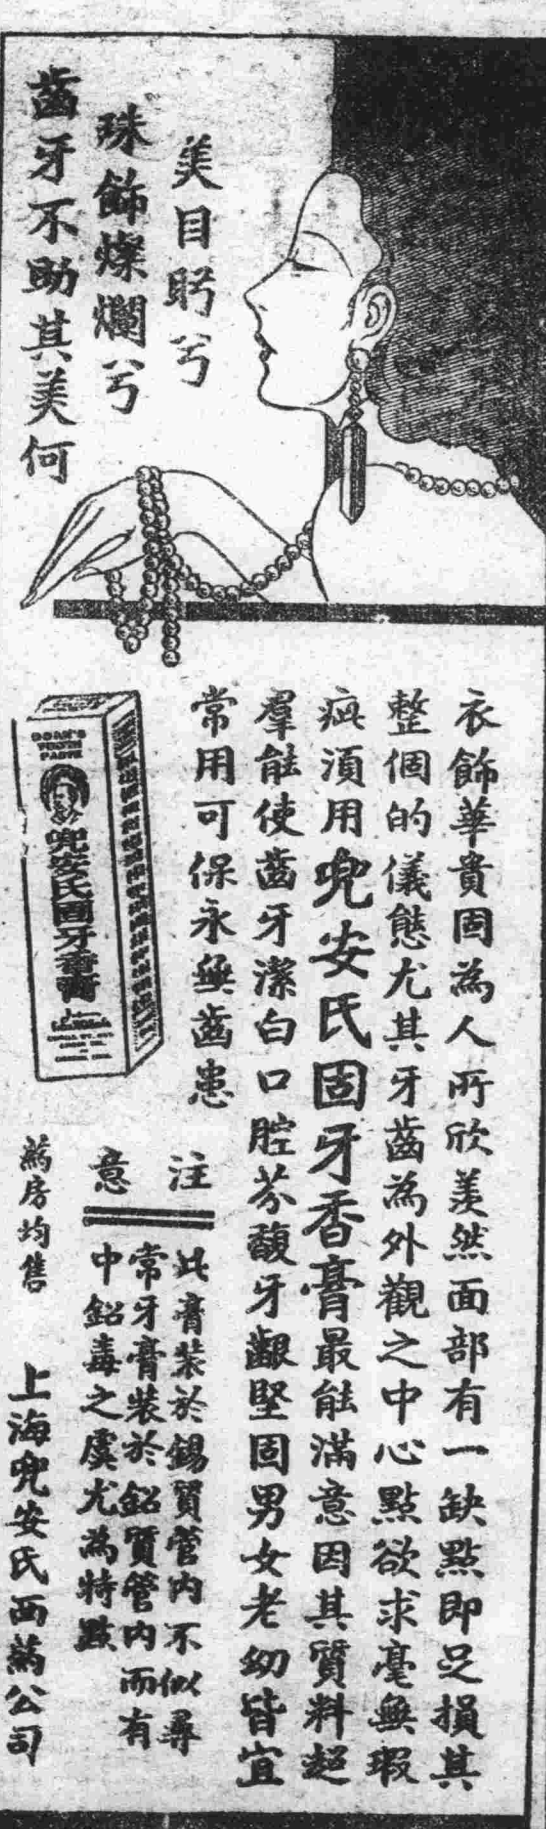 美目盻兮
珠飾燦爛兮
齒牙不助其美何
衣飾華貴固為人所欣羨然面部有一缺點即足損其
整個的儀態尤其牙齒為外觀之中心點欲求毫無瑕
疵須用兜安氏固牙香膏最能滿意因其質料超
羣能使齒牙潔白口腔芬馥牙齦堅固男女老幼皆宜
常用可保永無齒患
DOAN'S
TOOTH
PASTE
兜安氏固牙香膏
注意
此膏裝於錫質管內不似尋
常牙膏裝於鉛質管內而有
中鉛毒之虞尤為特點
藥房均售
上海兜安氏西藥公司